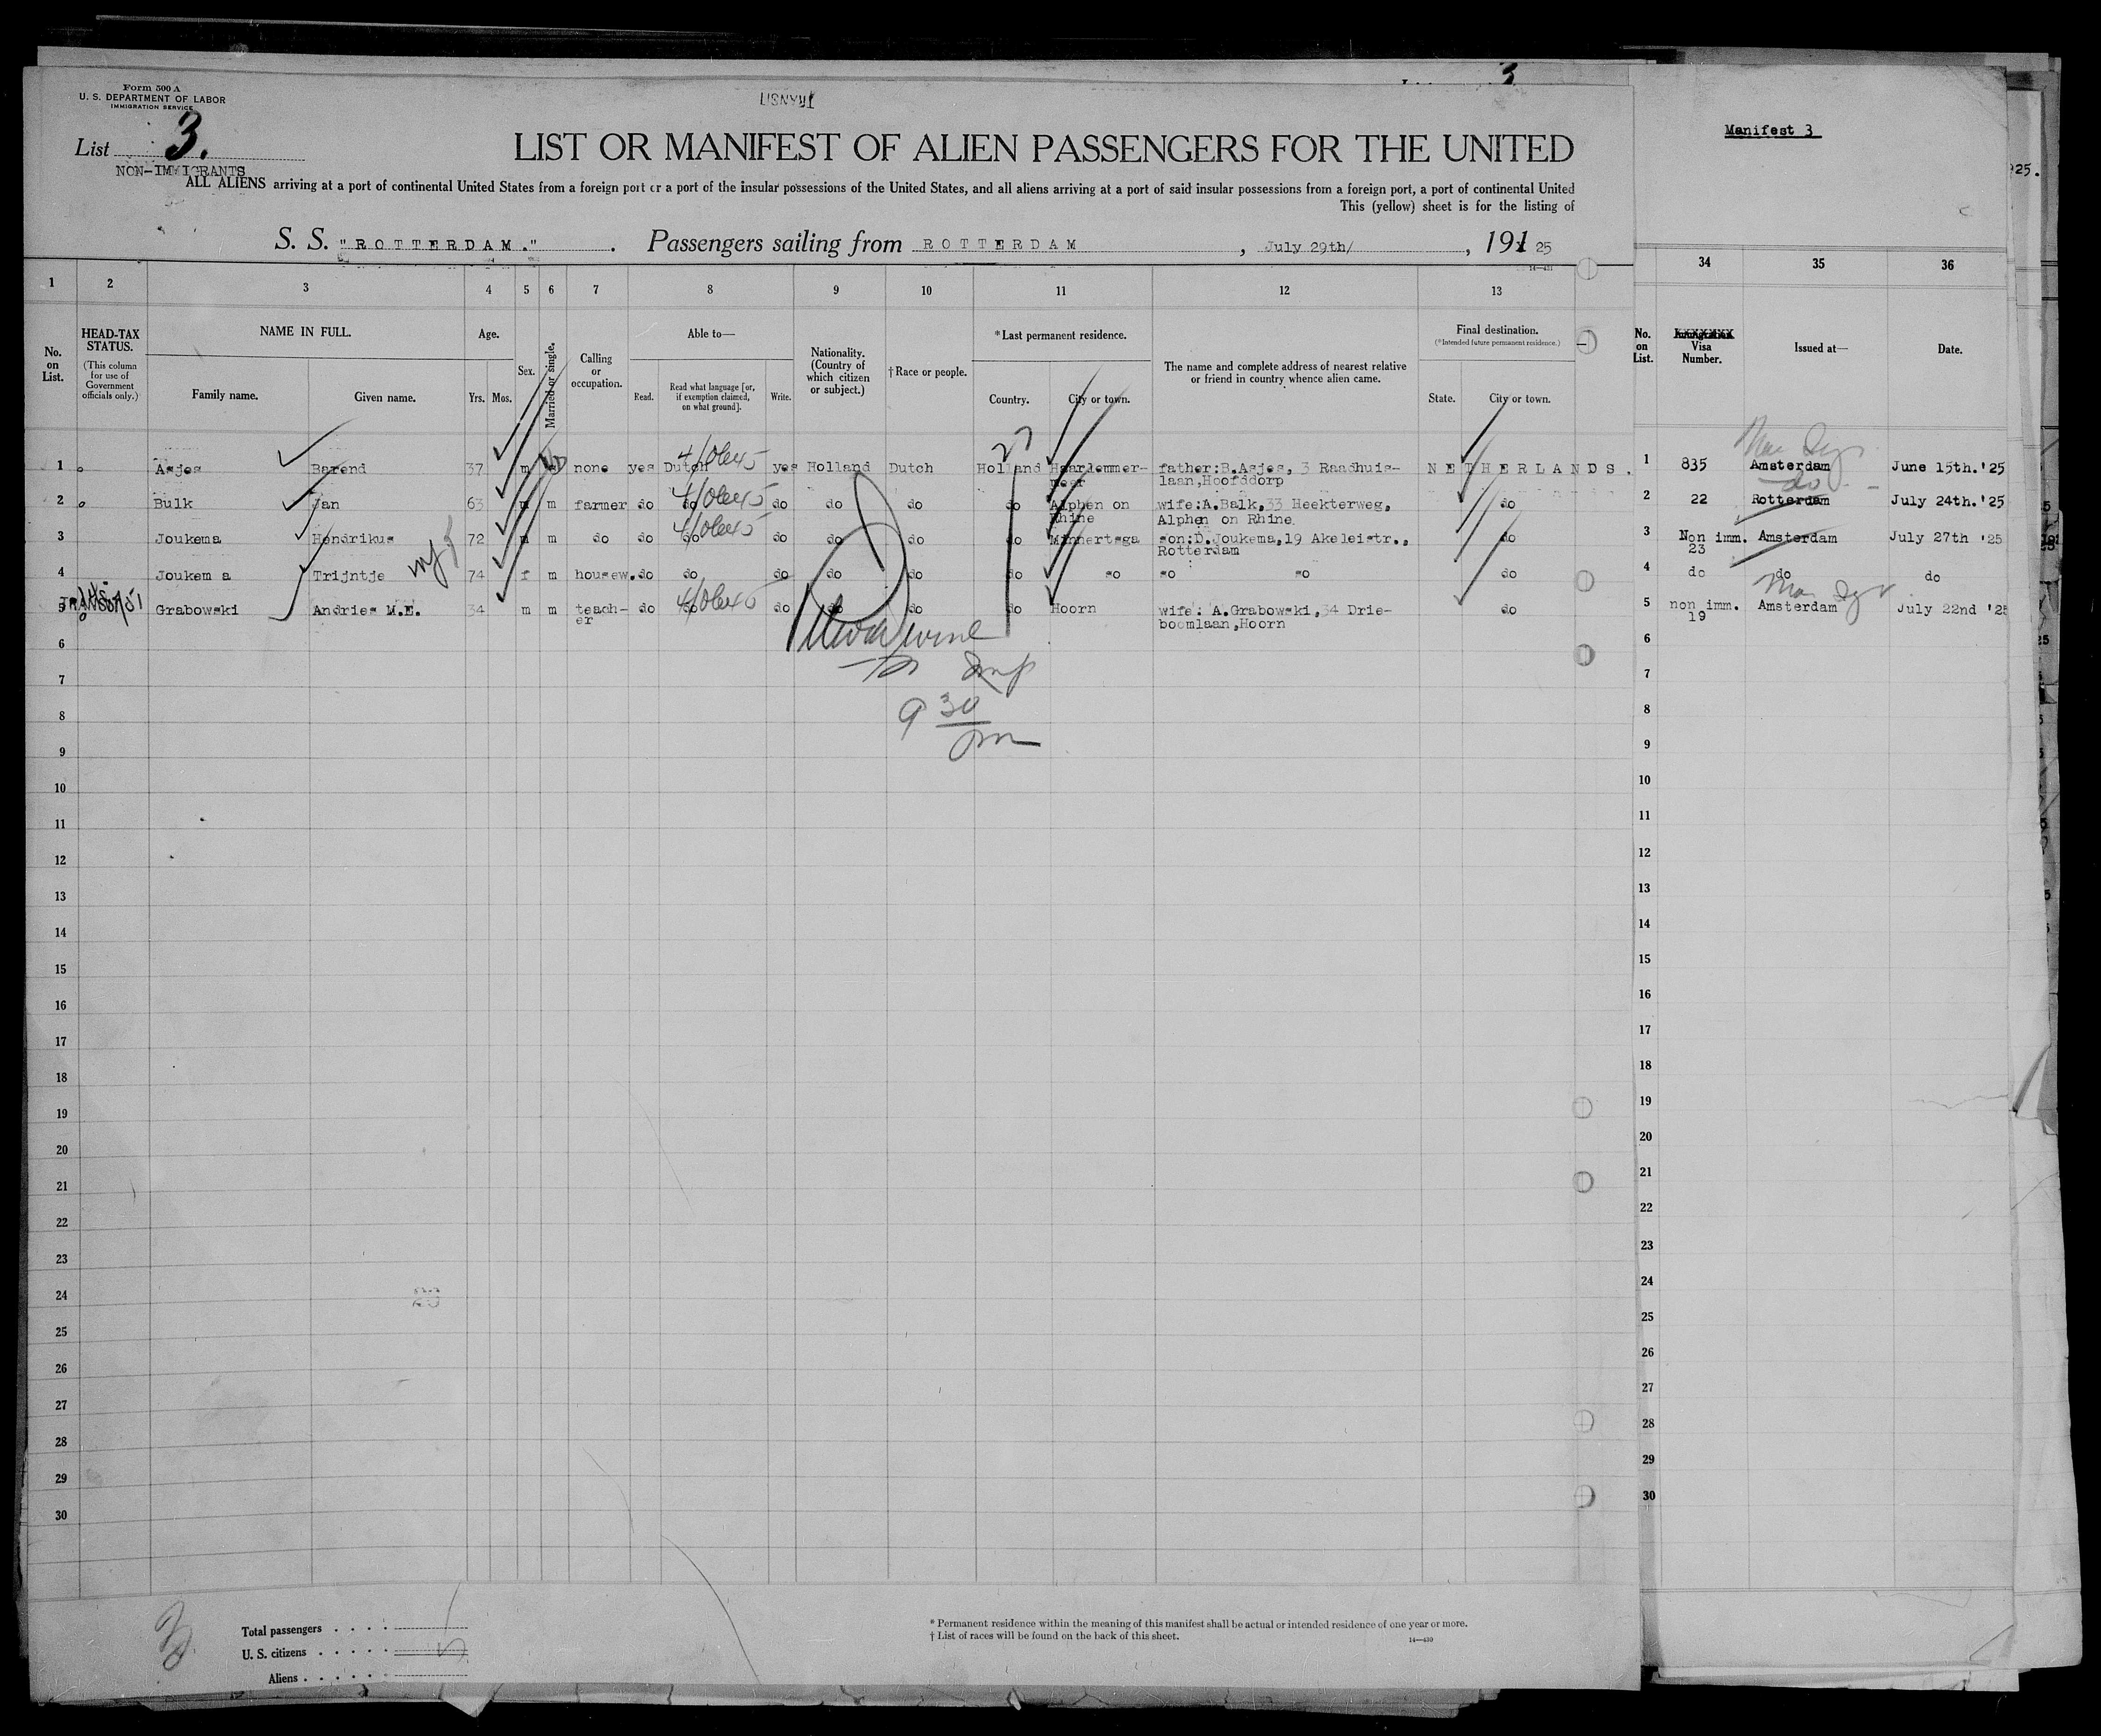 Form 500 A
U. S. DEPARTMENT OF LABOR
IMMIGRATION SERVICE
TRANSIT
3
List 3.
NON-IMMIGRANTS
LIST OR MANIFEST OF ALIEN PASSENGERS FOR THE UNITED
ALL ALIENS arriving at a port of continental United States from a foreign port or a port of the insular possessions of the United States, and all aliens arriving at a port of said insular possessions from a foreign port, a port of continental United
This (yellow) sheet is for the listing of
S. S. "ROTTERDAM." . Passengers sailing from ROTTERDAM , July 29th/ , 191 25
14—431
Manifest 3
925.
1 2 3 4 5 6 7 8 9 10 11 12 13
34 35 36
No. on List.
HEAD-TAX STATUS.
(This column for use of Government officials only.)
NAME IN FULL.
Family name. Given name.
Age.
Yrs. Mos.
Sex.
Married or single.
Calling or occupation.
Able to—
Read. Read what language [or, if exemption claimed, on what ground]. Write.
Nationality. (Country of which citizen or subject.)
†Race or people.
*Last permanent residence.
Country. City or town.
The name and complete address of nearest relative or friend in country whence alien came.
Final destination.
(*Intended future permanent residence.)
State. City or town.
No. on List.
Visa Number.
Issued at—
Date.
1 Asjes Barend 37 m none yes Dutch yes Holland Dutch Holland Haarlemmer- father:B.Asjes, 3 Raadhuis- NETHERLANDS. 1 835 Amsterdam June 15th.'25
meer laan,Hoofddorp
do
2 Bulk Jan 63 m m farmer do do do do do do Alphen on wife:A.Balk,33 Heekterweg, do 2 22 Rotterdam July 24th.'25
Rhine Alphen on Rhine
3 Joukema Hendrikus 72 m m do do do do do do do Minnertsga son:D.Joukema,19 Akeleistr., do 3 Non imm. Amsterdam July 27th '25
Rotterdam 23
4 Joukem a Trijntje 74 f m housew. do do do do do do do do do do 4 do do do
TRANSIT
5 Grabowski Andries M.E. 34 m m teach- do do do do do do Hoorn wife: A.Grabowski,34 Drie- do 5 non imm. Amsterdam July 22nd '25
er boomlaan,Hoorn 19
6 6
7 7
9 30
8 8
9 9
10 10
11 11
12 12
13 13
14 14
15 15
16 16
17 17
18 18
19 19
20 20
21 21
22 22
23 23
24 24
25 25
26 26
27 27
28 28
29 29
30 30
Total passengers . . . .
U. S. citizens . . . . . 5
Aliens . . . . . .
* Permanent residence within the meaning of this manifest shall be actual or intended residence of one year or more.
† List of races will be found on the back of this sheet.
14—430